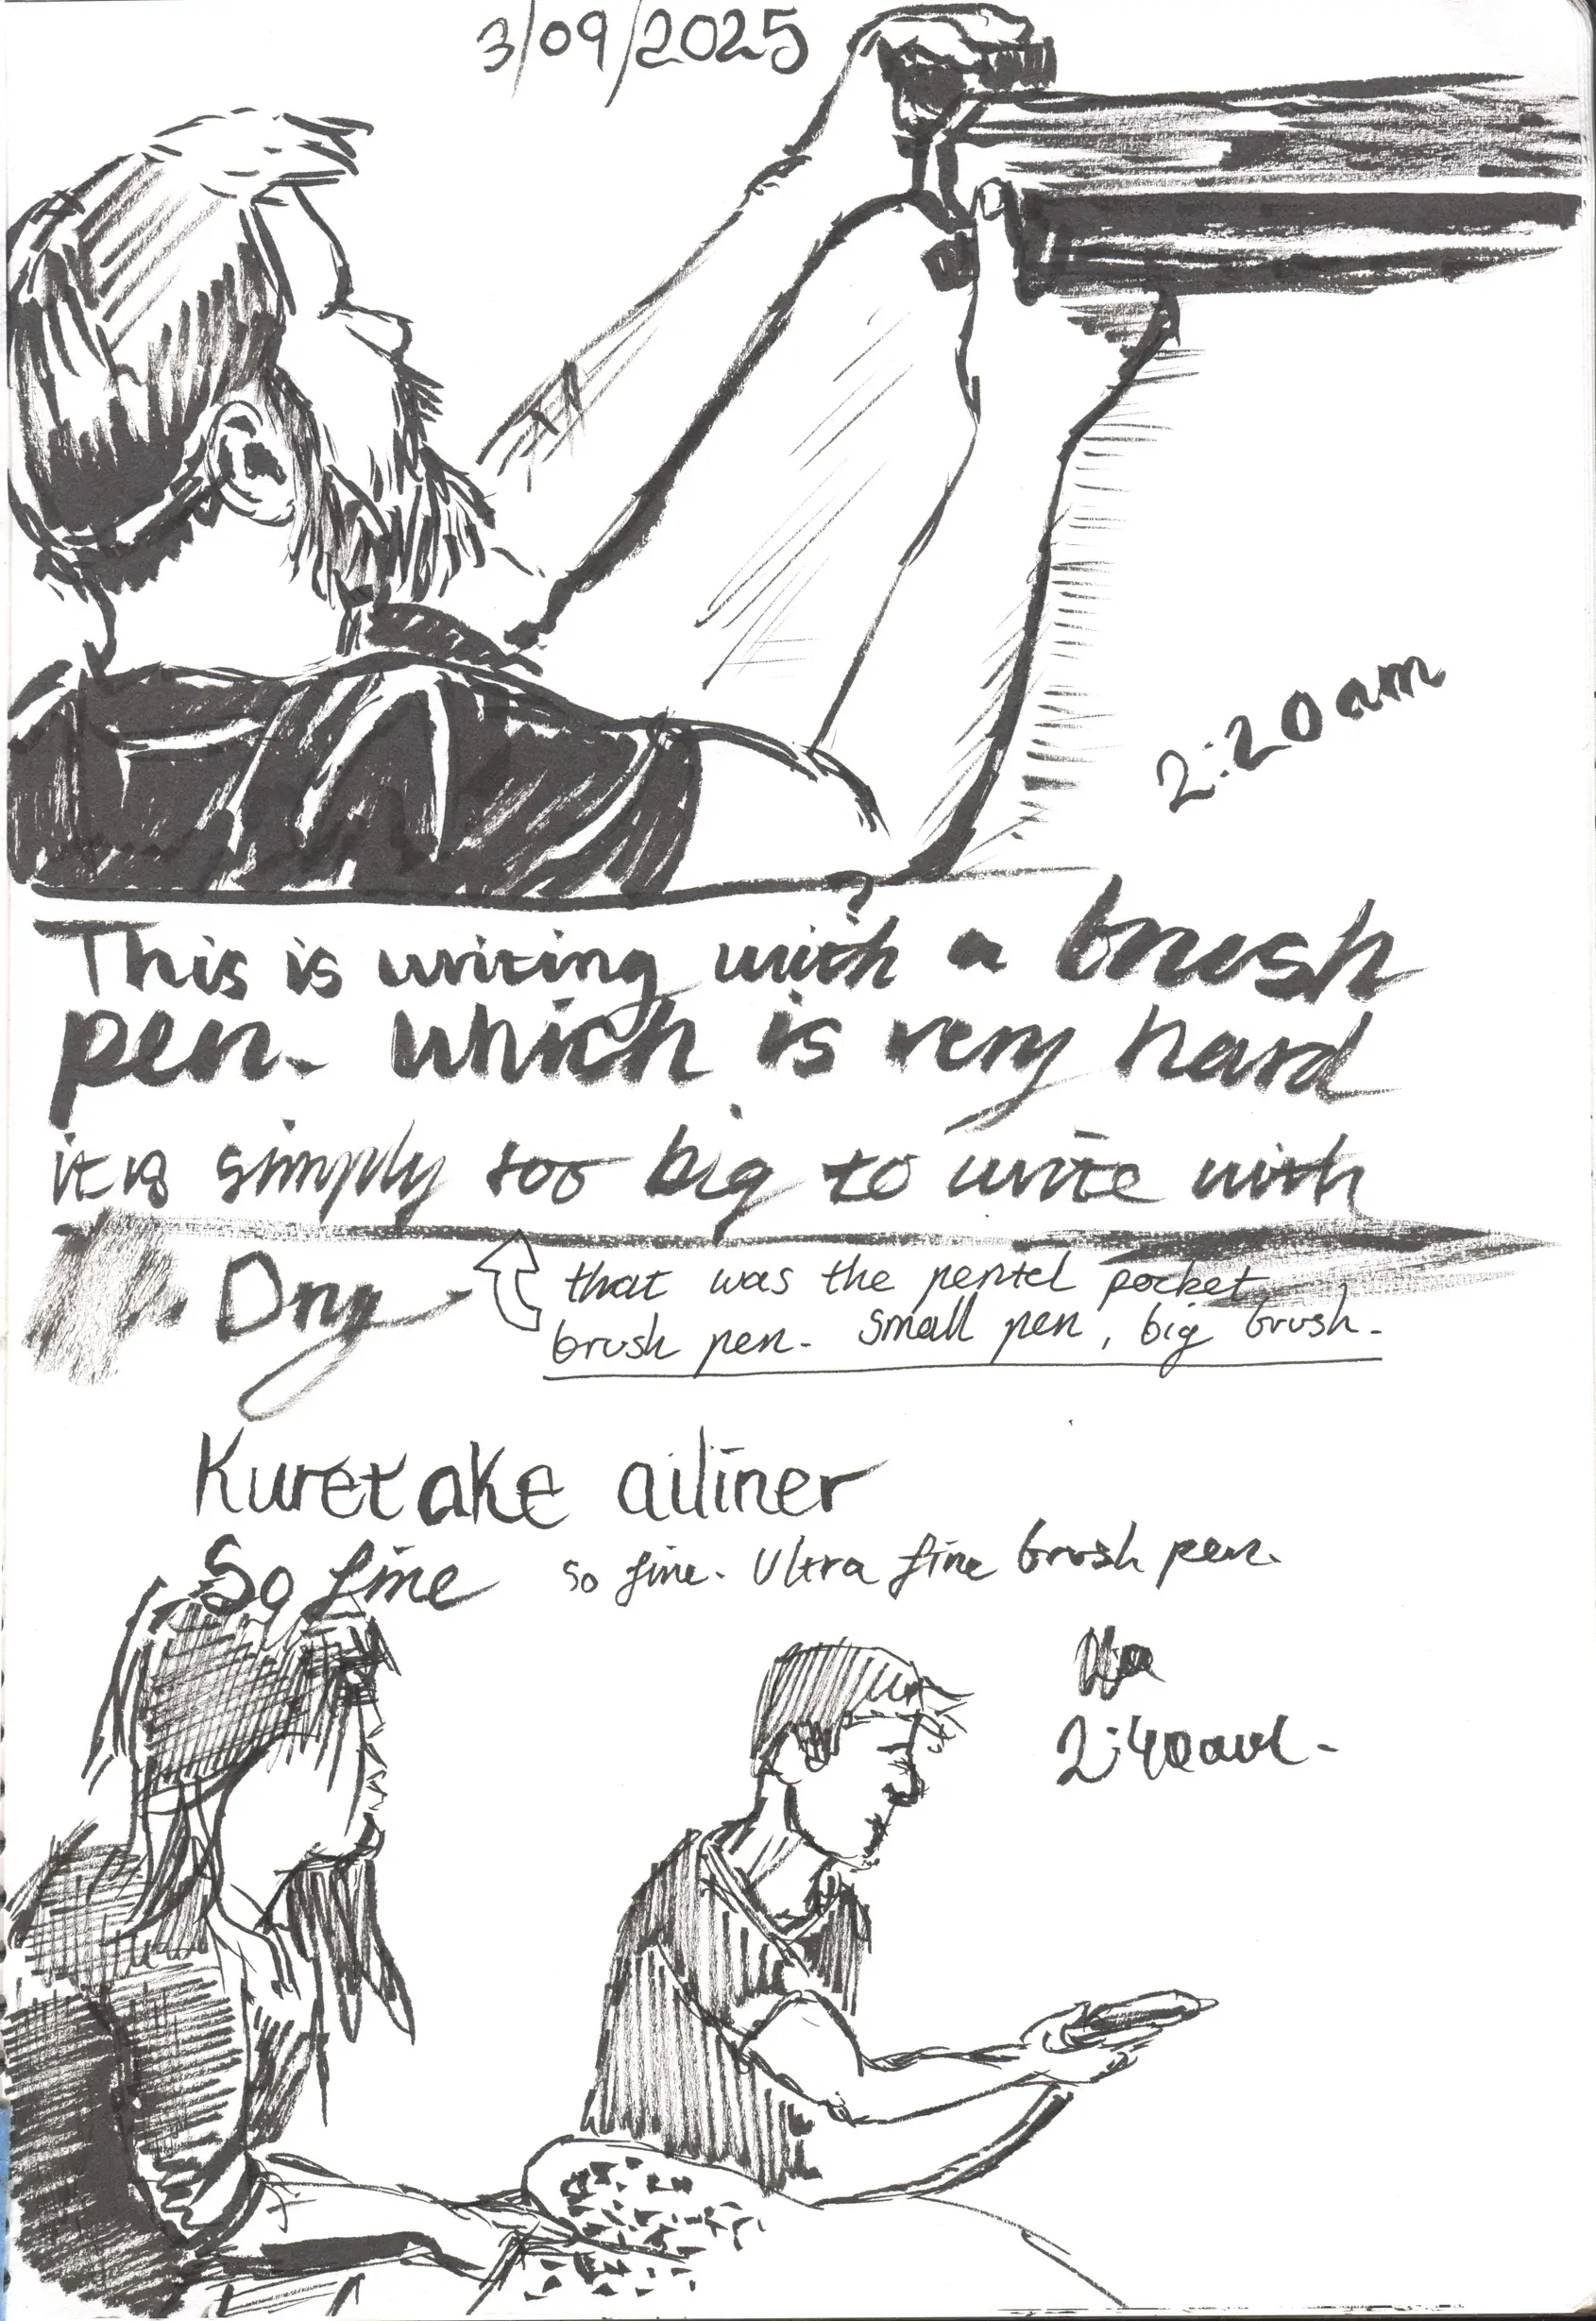 3/09/2025
2:20am
This is writing with a brush
pen. which is very hard
it is simply too big to write with
Dry
that was the pentel pocket
brush pen. Small pen, big brush.
Kuretake ailiner
So fine
so fine. Ultra fine brush pen.
2:40am.